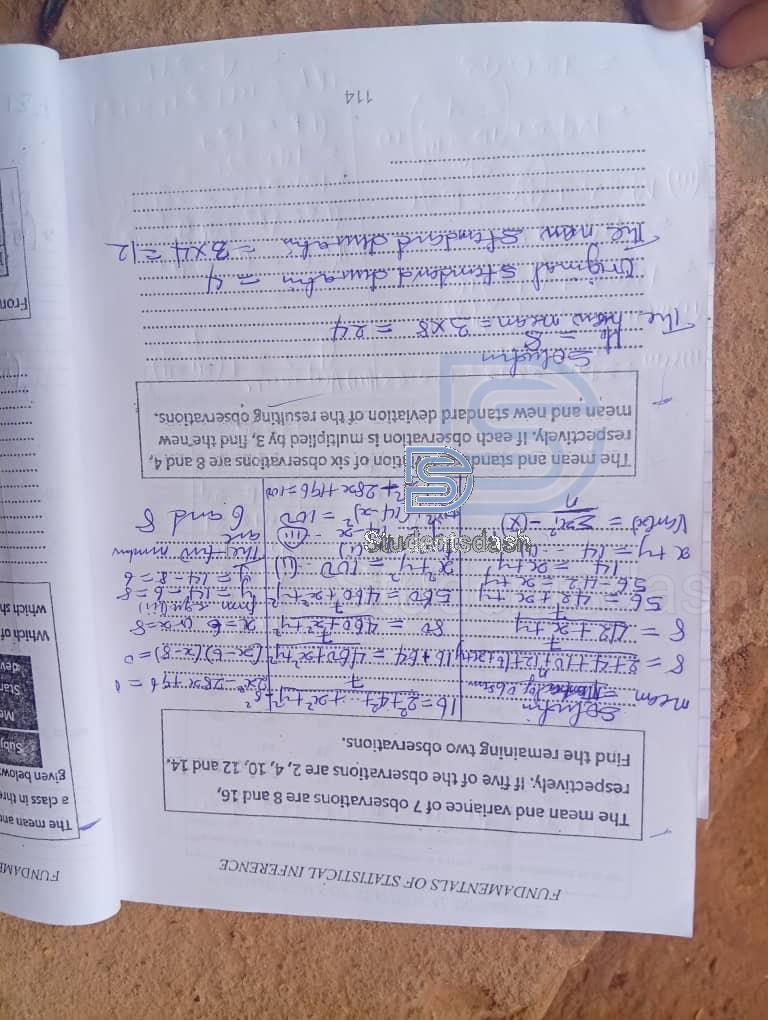 FUNDAMENTALS OF STATISTICAL INFERENCE
The mean and variance of 7 observations are 8 and 16,
respectively. If five of the observations are 2, 4, 10, 12 and 14.
Find the remaining two observations.
Solution
mean =
8 = 2+4+10+12+14+x+y
7
8 = 42+x+y
7
56 = 42+x+y
56-42 = x+y
14 = x+y
x+y = 14
Var(x) = Σx² - (x̄)²
n
7
16+64 = 460+x²+y²
7
80 = 460+x²+y²
7
560 = 460+x²+y²
x²+y² = 100
x²+(14-x)² = 100
28x+196=100
2x²-28x+96 = 0
(x-6)(x-8)=0
x=6 or x=8
y=14-6=8
y=14-8=6
The two number
are
6 and 8
The mean and standard deviation of six observations are 8 and 4,
respectively. If each observation is multiplied by 3, find the new
mean and new standard deviation of the resulting observations.
Solution
= 8
The new mean = 3x8 = 24
Original standard deviation = 4
The new standard deviation = 3x4 = 12
114
Studentsdash
FUNDAME
The mean and
a class in thre
given below
Subj
Me
Stan
devi
Which of
which sh
From